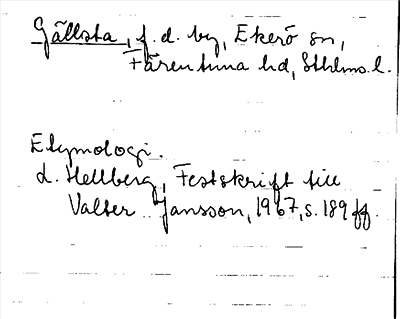 Gällsta, f.d. by, Ekerö sn,
Färentuna hd, Sthlms l.
Etymologi.
L. Hellberg, Festskrift till
Valter Jansson, 1967, s. 189 ff.